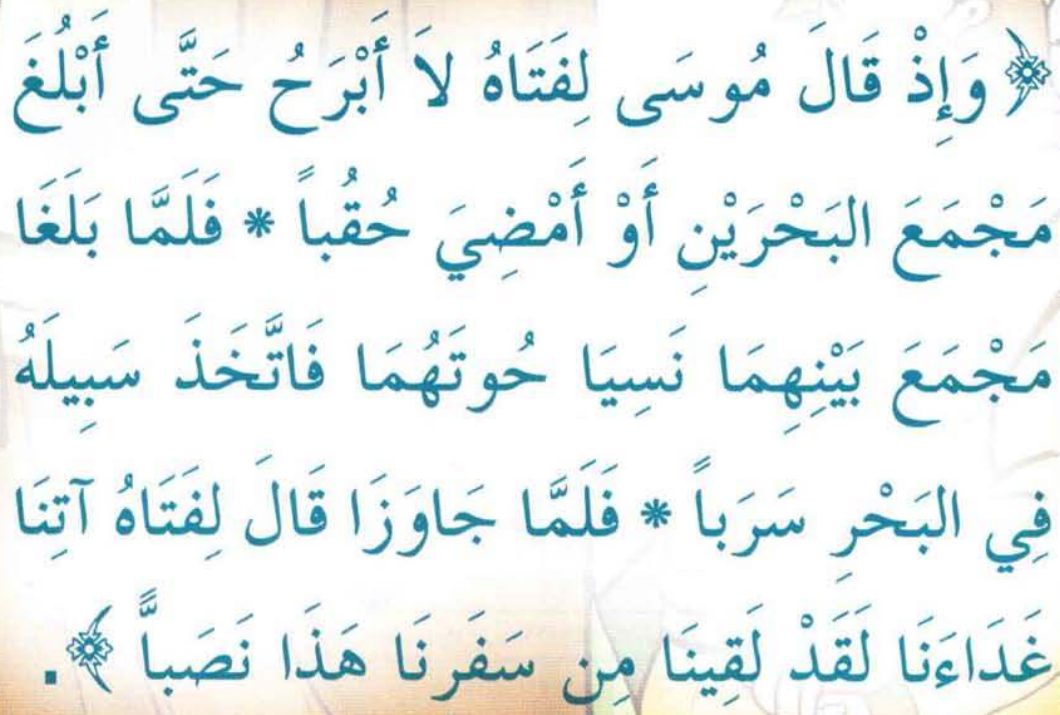 ﴿ وَإِذْ قَالَ مُوسَى لِفَتَاهُ لاَ أَبْرَحُ حَتَّى أَبْلُغَ
مَجْمَعَ البَحْرَيْنِ أَوْ أَمْضِيَ حُقُباً * فَلَمَّا بَلَغَا
مَجْمَعَ بَيْنِهِمَا نَسِيَا حُوتَهُمَا فَاتَّخَذَ سَبِيلَهُ
فِي البَحْرِ سَرَباً * فَلَمَّا جَاوَزَا قَالَ لِفَتَاهُ آتِنَا
غَدَاءَنَا لَقَدْ لَقِينَا مِن سَفَرِنَا هَذَا نَصَباًّ ﴾.